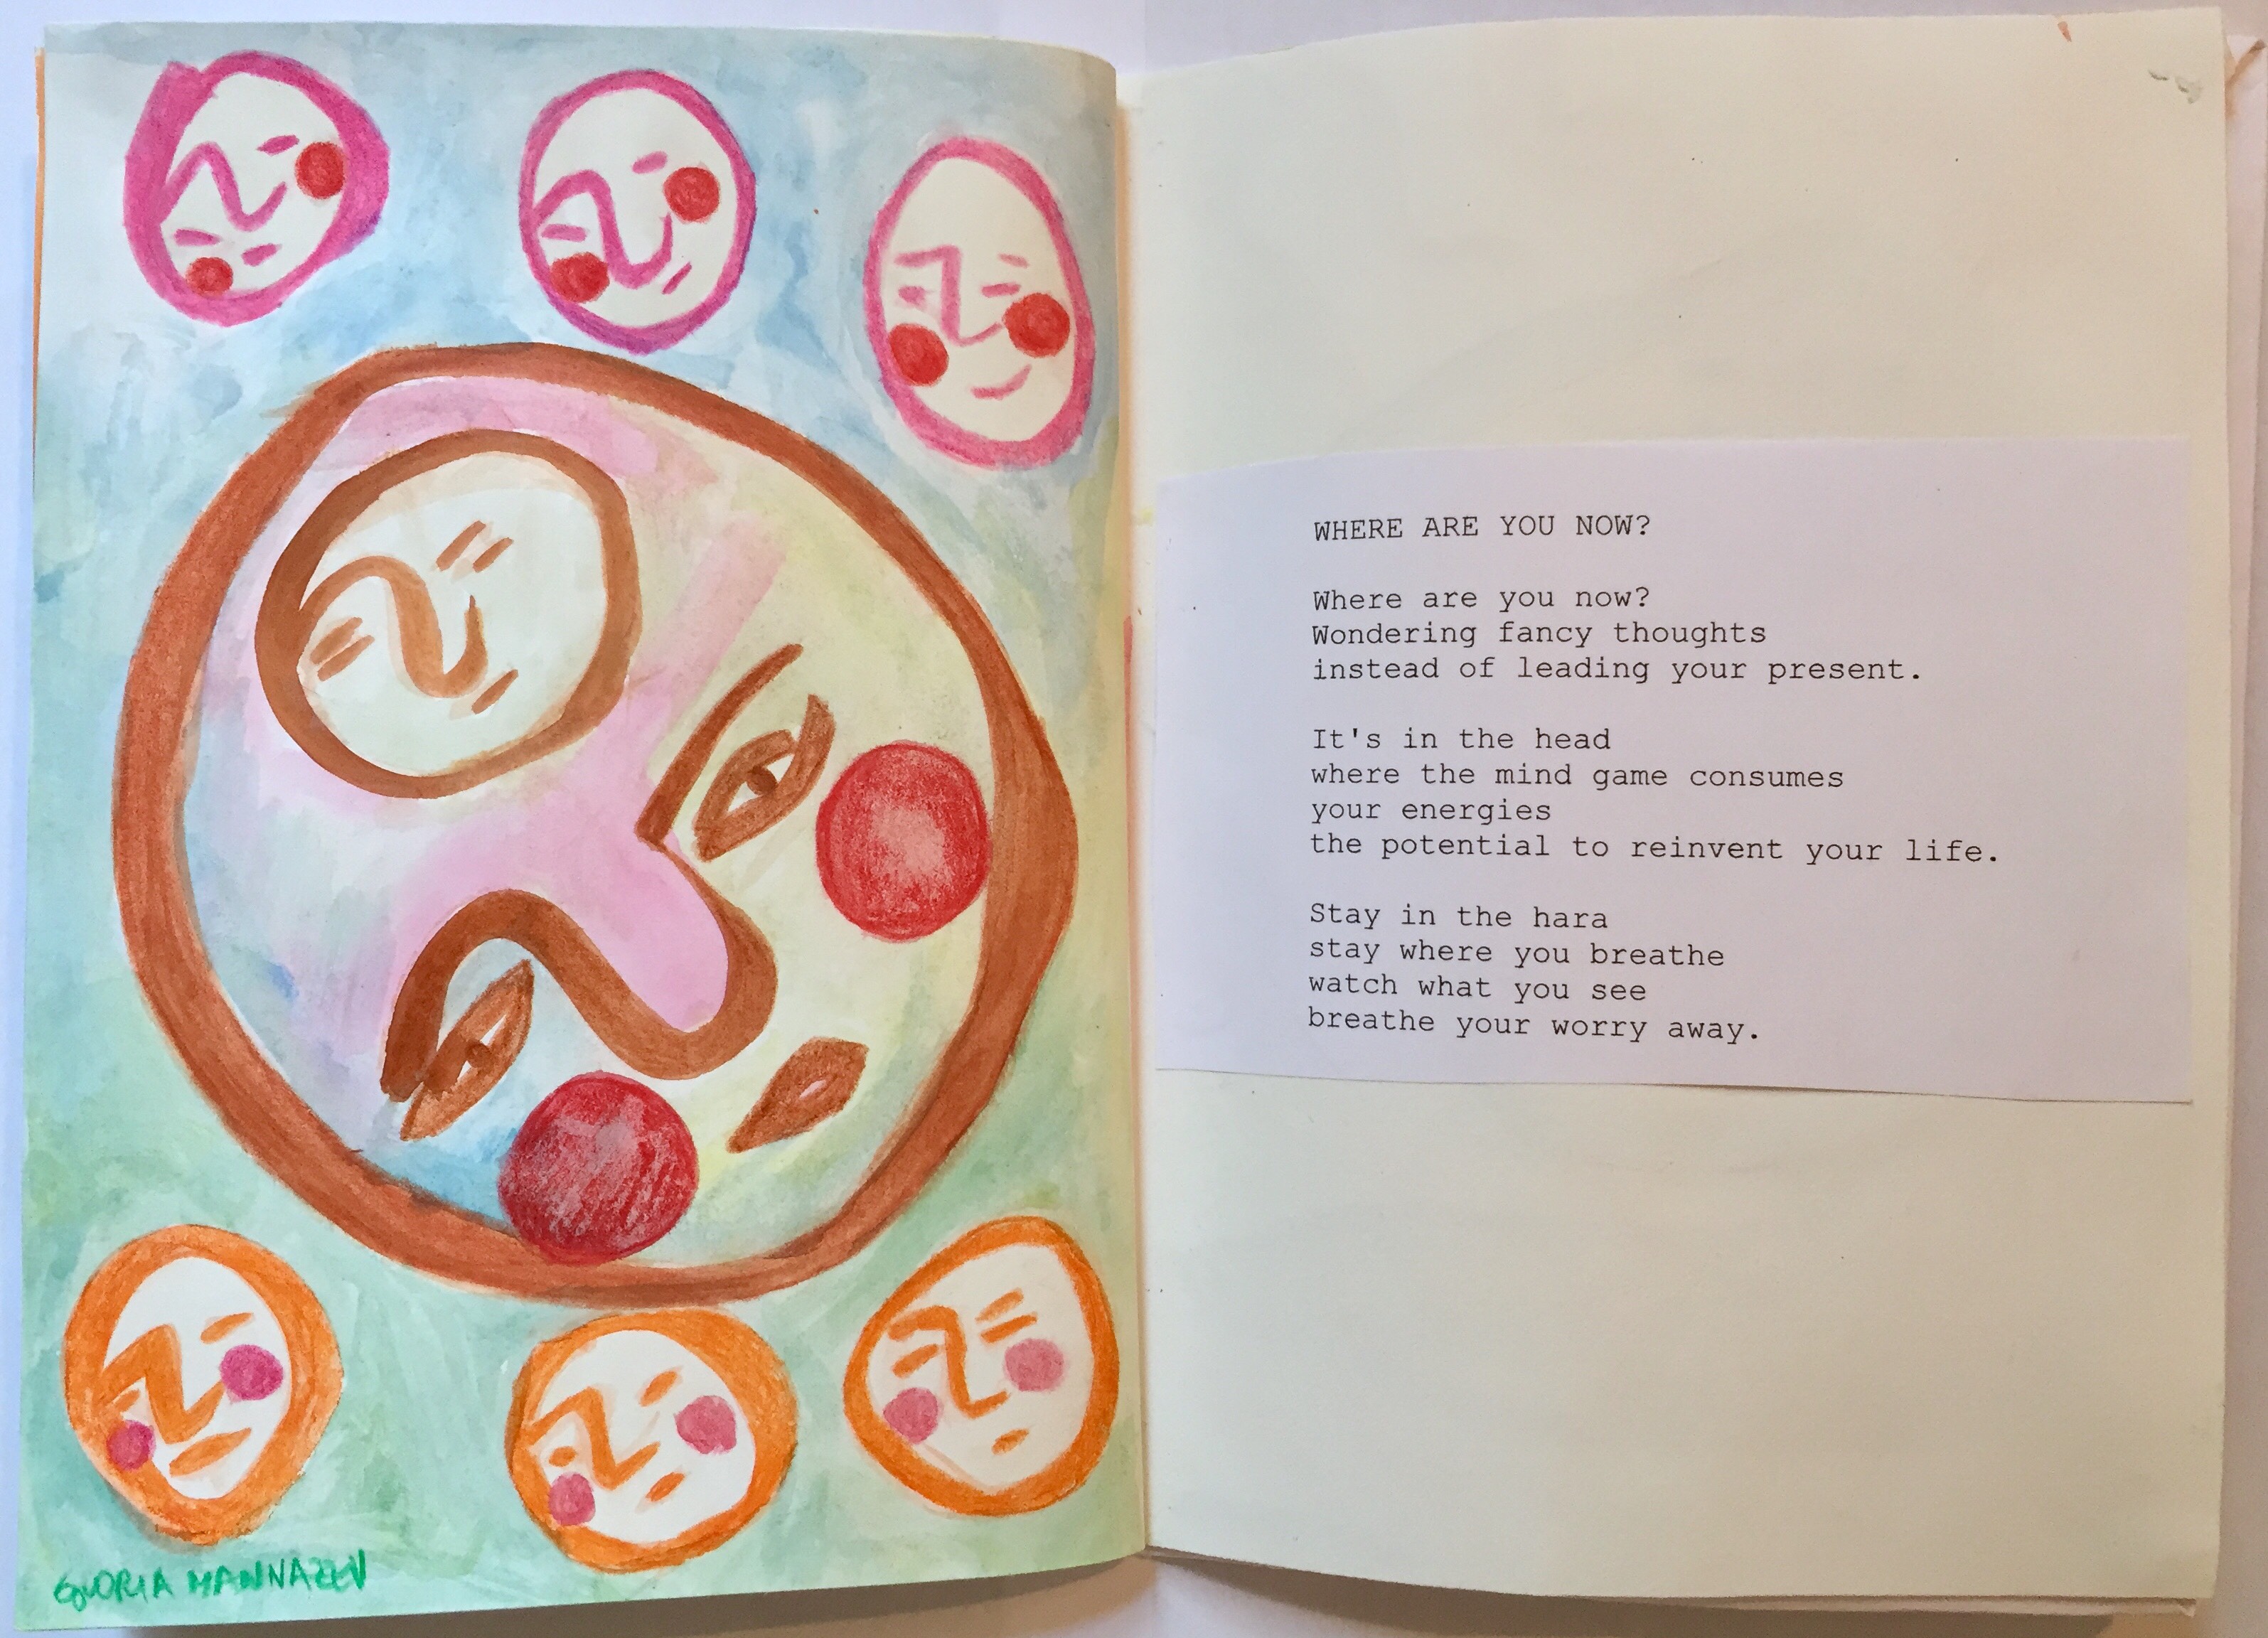 WHERE ARE YOU NOW?
Where are you now?
Wondering fancy thoughts
instead of leading your present.
It's in the head
where the mind game consumes
your energies
the potential to reinvent your life.
Stay in the hara
stay where you breathe
watch what you see
breathe your worry away.
GLORIA